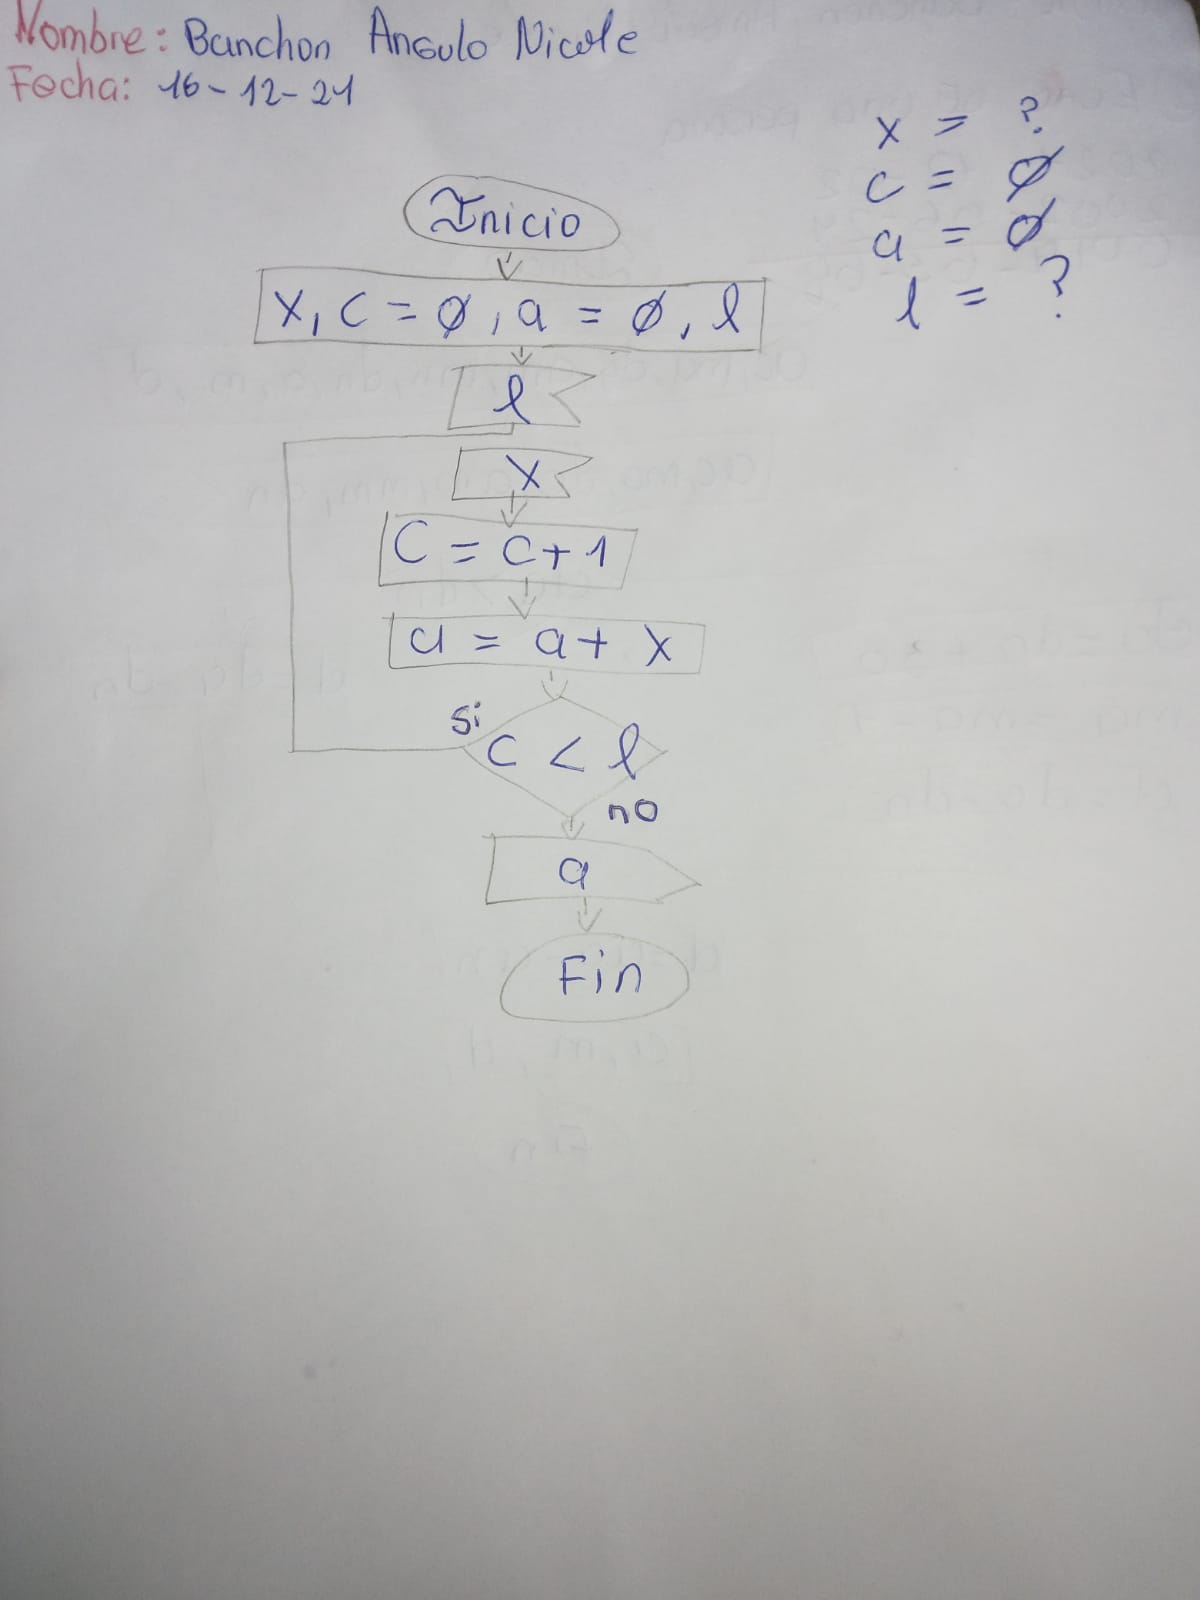 Nombre: Banchon Angulo Nicole
Fecha: 16-12-21
x = ?
c = Ø
a = Ø
l = ?
Inicio
X, C = Ø, a = Ø, l
l
X
C = C + 1
a = a + x
Si
C < l
no
a
Fin